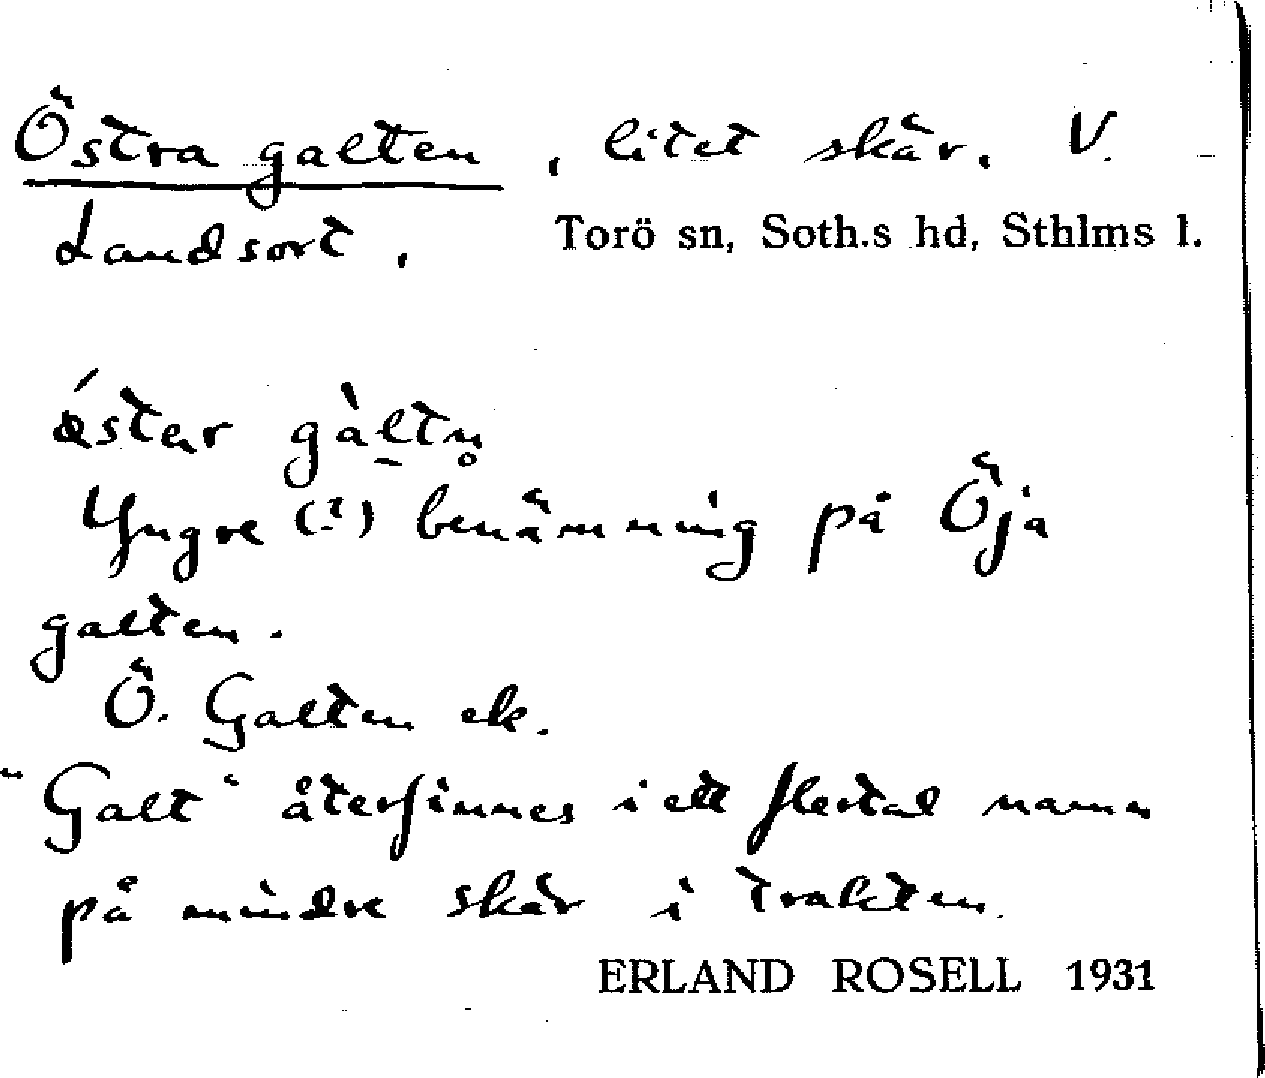 Östra galten, litet skär. V.
Landsort. Torö sn, Soth.s hd, Sthlms l.
galtn̥
Yngre (?) benämning på Öja
galten.
Ö. Galten ek.
"Galt" återfinnes i ett flertal namn
på mindre skär i trakten.
ERLAND ROSELL 1931